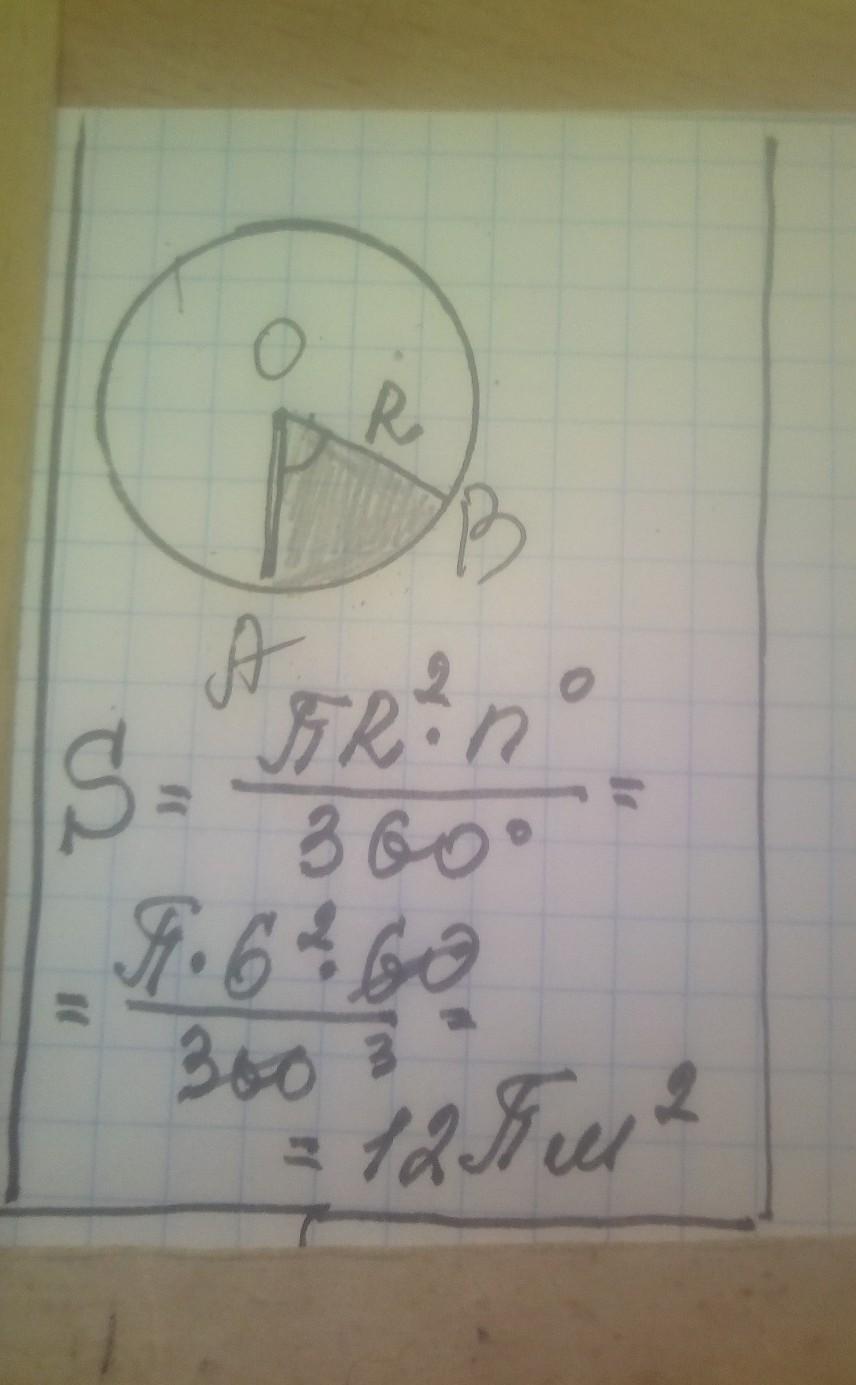 O
R
B
A
S = πR²·n° / 360° =
= π·6²·60 / 360 3 =
= 12πм²